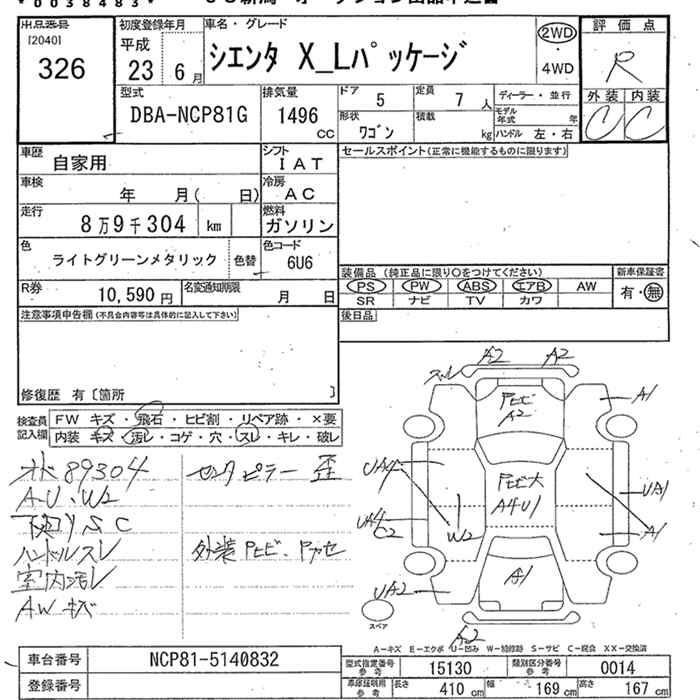 *0038483*
出品番号
[2040]
326
初度登録年月
平成
23年6月
車名・グレード
シエンタ X_Lパッケージ
2WD
・
4WD
評価点
R
外装 内装
C C
型式
DBA-NCP81G
排気量
1496 cc
ドア 5
定員 7 人
形状 ワゴン
積載 kg
ディーラー・並行
モデル年式 年
ハンドル 左・右
車歴 自家用
シフト IAT
セールスポイント(正常に機能するものに限ります)
車検 年 月( 日)
冷房 AC
走行 8万9千304 km
燃料 ガソリン
色 ライトグリーンメタリック 色替
色コード 6U6
装備品(純正品に限り○をつけてください)
新車保証書
PS PW ABS エアB AW
有・無
SR ナビ TV カワ
R券 10,590円
名変通知期限 月 日
後日品
注意事項申告欄(不具合内容等は具体的に記入して下さい)
修復歴 有〔箇所 〕
検査員記入欄
FW キズ・飛石・ヒビ割・リペア跡・×要
内装 キズ・汚レ・コゲ・穴・スレ・キレ・破レ
メ 89304
A-U、W2
下廻りSC
ハンドルスレ
室内汚レ
AWキズ
センターピラー 歪
外装 Pヒビ、Pカセ
スレ
A2
A2
Pヒビ
A2
A1
UA4
Pヒビ大
A4U1
UA1
UA4
C2
W2
A1
UA2
A1
A2
スペア
A-キズ E-エクボ U-凹み W-補修跡 S-サビ C-腐食 XX-交換済
車台番号 NCP81-5140832
登録番号
型式指定番号 参考 15130
類別区分番号 参考 0014
車庫証明用 参考 長さ 410 cm 幅 169 cm 高さ 167 cm